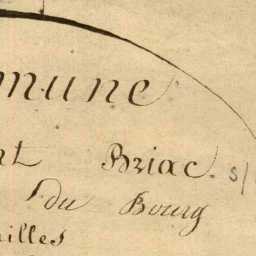 mune
nt Briac. s/
du Bourg
illes